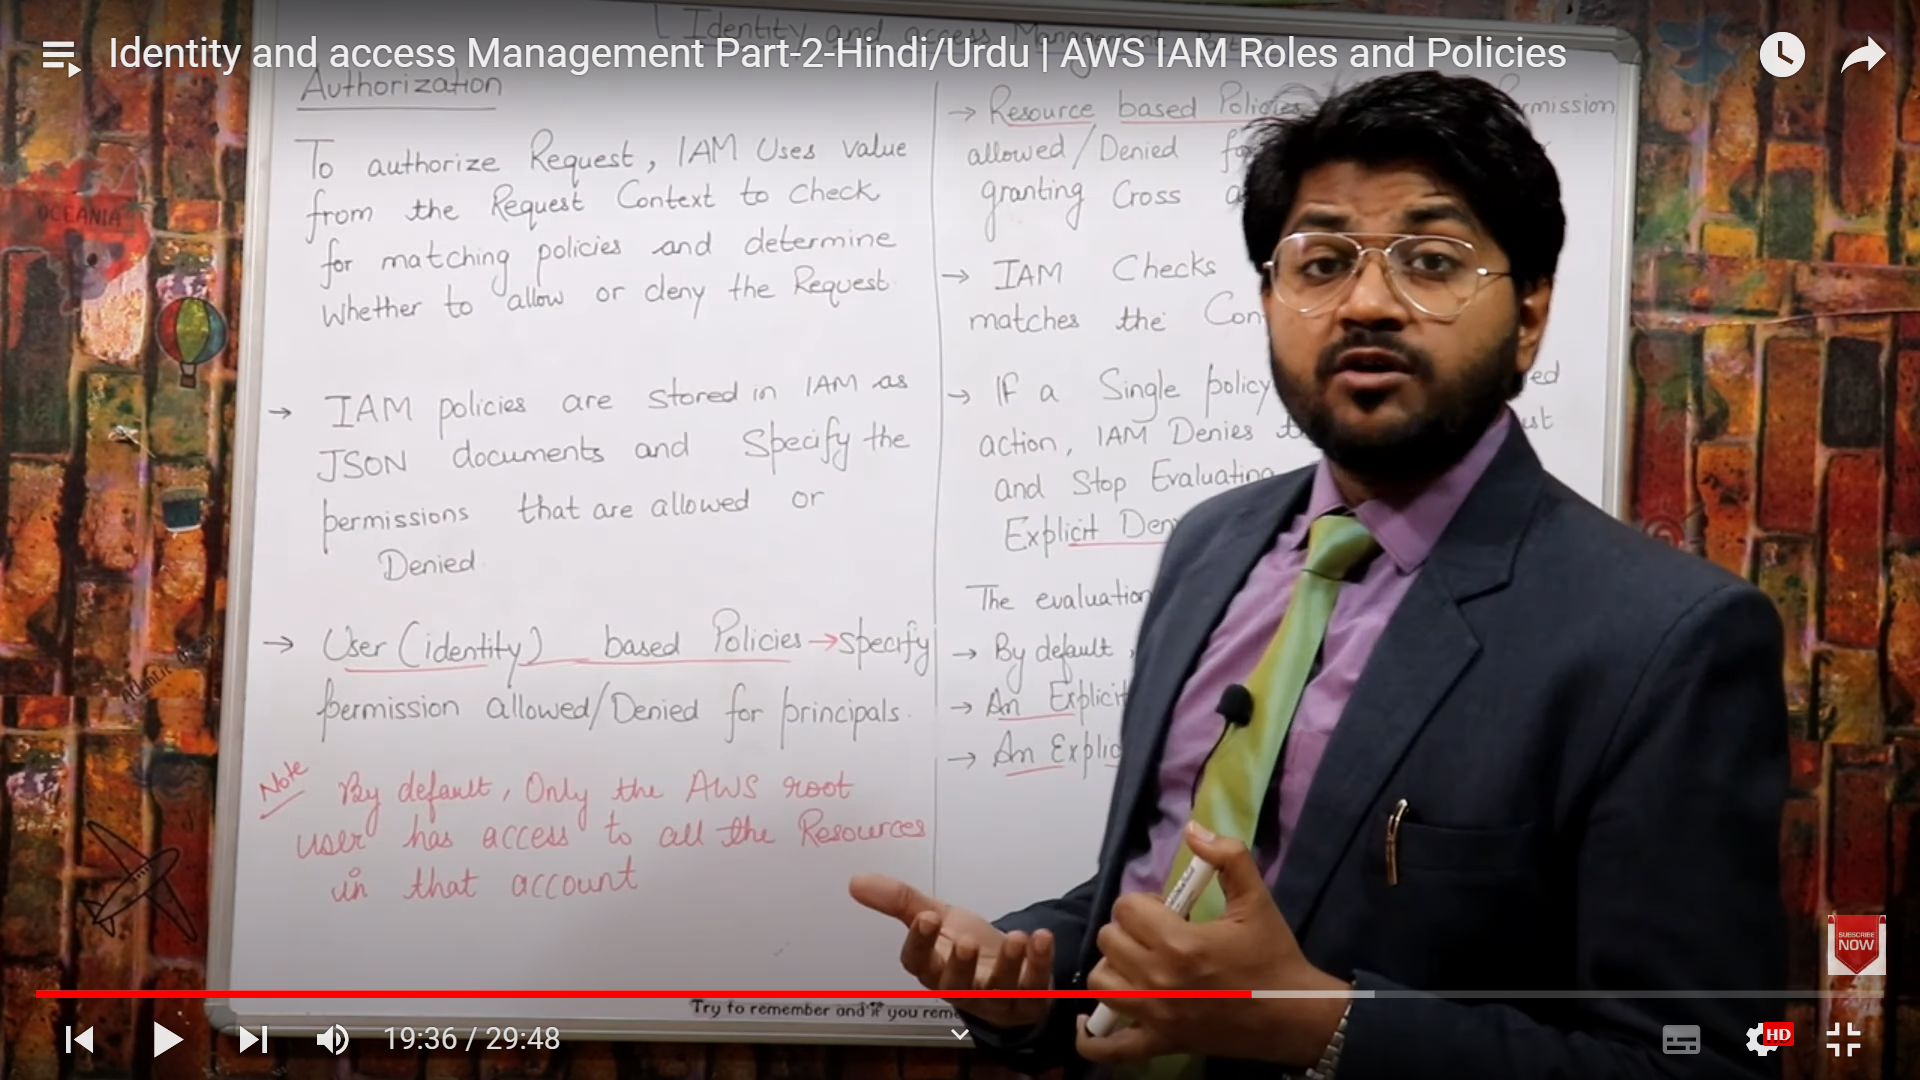 Identity and access Management Part-2-Hindi/Urdu | AWS IAM Roles and Policies
Identity and access Management
Authorization
To authorize Request, IAM Uses value
from the Request Context to check
for matching policies and determine
Whether to allow or deny the Request
→ IAM policies are stored in IAM as
JSON documents and Specify the
permissions that are allowed or
Denied
→ User (identity) based Policies → specify
permission allowed/Denied for principals.
Note By default, Only the AWS root
user has access to all the Resources
in that account
→ Resource based Policies
allowed/Denied
granting Cross
→ IAM Checks
matches the
→ If a Single policy
action, IAM Denies
and Stop Evaluating
Explicit
The evaluation
→ By default,
→ An Explicit
→ An
OCEANIA
Try to remember and if you
SUBSCRIBE
NOW
19:36 / 29:48
HD